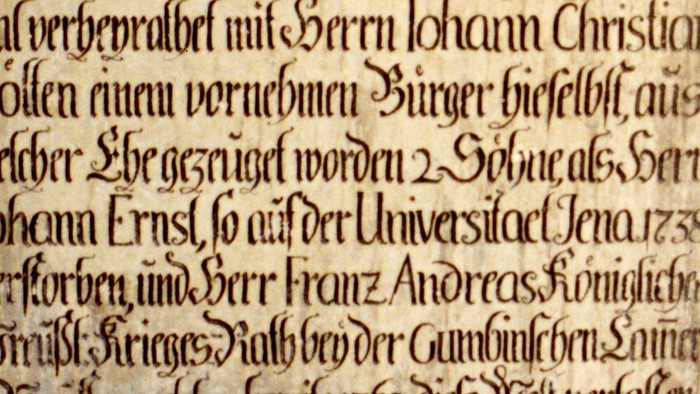 verheyrathet mit Herrn Iohann Christia
ölten einem vornehmen Bürger hieselbst, aus
elcher Ehe gezeuget worden 2 Söhne, als Herr
ohann Ernst, so auf der Universitaet Jena 173
erstorben, und Herr Franz Andreas Königliche
Preußl: Krieges-Rath bey der Gumbinschen Cam̄er